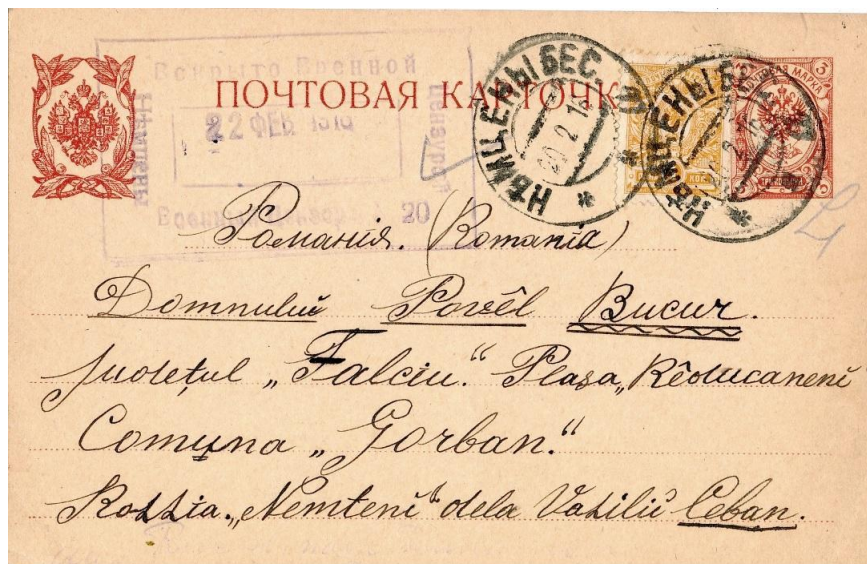 ПОЧТОВАЯ КАРТОЧК
Вскрыто Военной
Цензурой
22 ФЕВ 1916
Нѣмцены
Военный Цензор 20
НѢМЦЕНЫ БЕС.
20 2 16
НѢМЦЕНЫ БЕС.
3
КОП
Романия. (Romania)
Domnului Pavêl Bucur.
Judeţul „Falciu." Plasa „Rêducaneni"
Comuna „Gorban."
Rossia. „Nemteni" dela Vasiliĭ Ceban.